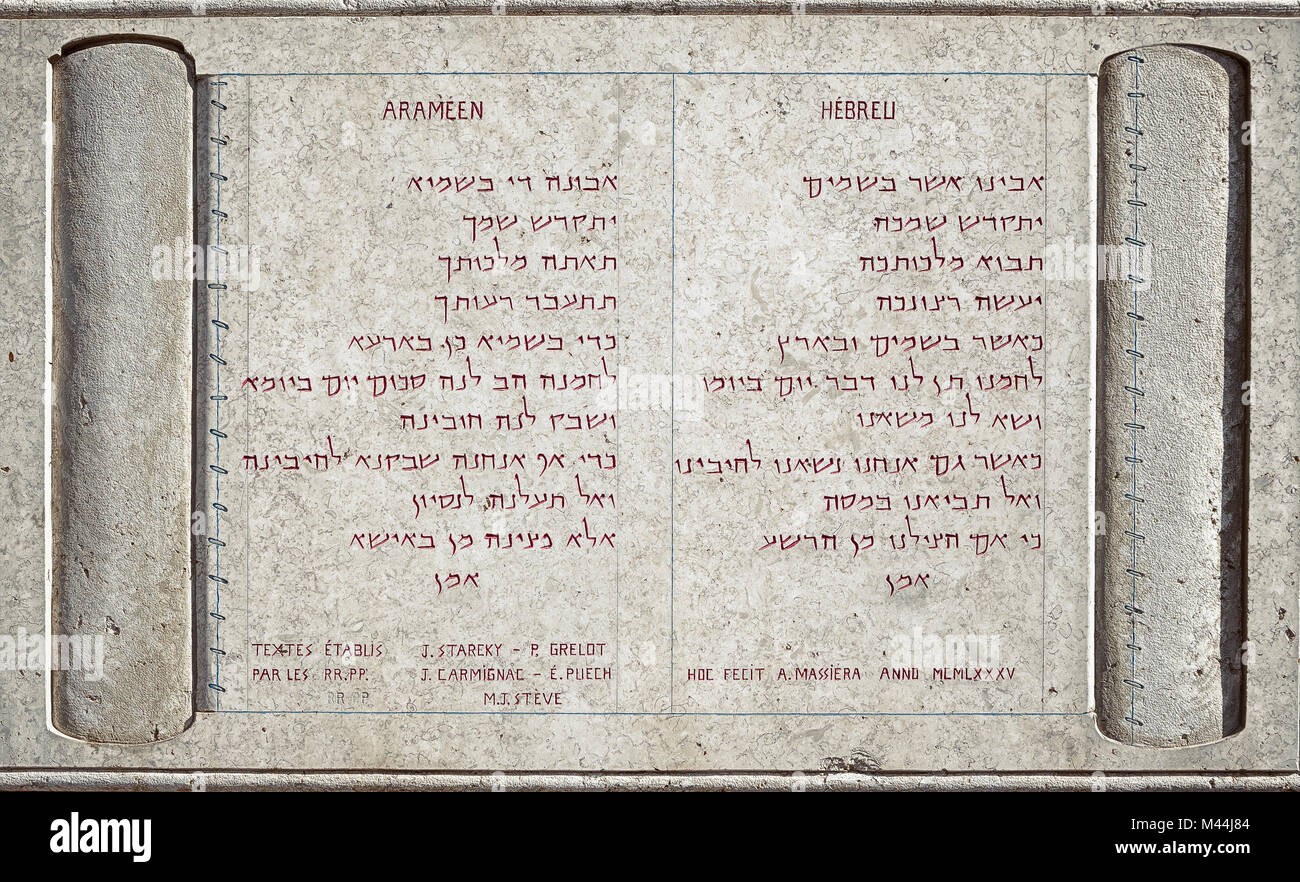 ARAMÉEN
אבונה די בשמיא
יתקדש שמך
תאתה מלכותך
תתעבד רעותך
כדי בשמיא כן בארעא
לחמנה הב לנה סכום יום ביומא
ושבק לנה חובינה
כדי אף אנחנה שבקנא לחיבינה
ואל תעלנה לנסיון
אלא פצינה מן באישא
אמן
HÉBREU
אבינו אשר בשמים
יתקדש שמכה
תבוא מלכותכה
יעשה רצונכה
כאשר בשמים ובארץ
לחמנו תן לנו דבר יום ביומו
ושא לנו משאנו
כאשר גם אנחנו נשאנו לחיבינו
ואל תביאנו במסה
כי אם הצילנו מן הרשע
אמן
TEXTES ÉTABLIS J. STARCKY - P. GRELOT
PAR LES RR. PP. J. CARMIGNAC - É. PUECH
RR PP M.J. STEVE
HOC FECIT A. MASSIÉRA ANNO MCMLXXXV
alamy
a
alamy
Image ID: M44J84
www.alamy.com